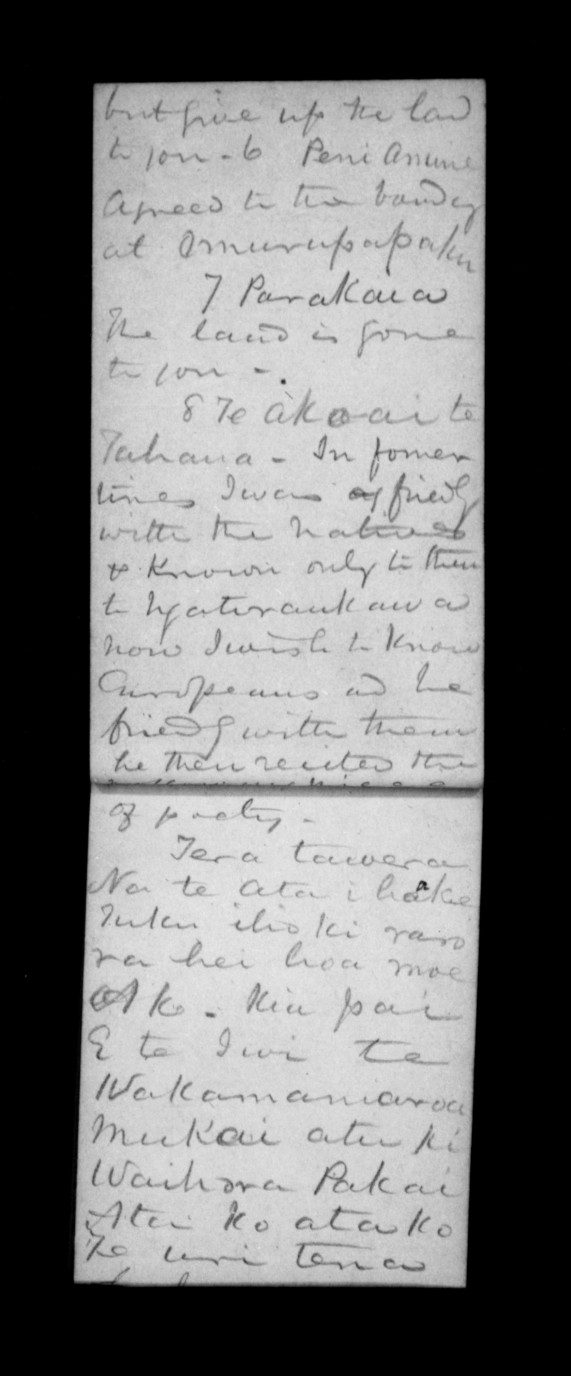 but give up the land
to you - 6 Peni Amine
agreed to the boundy
at Omurupapaku
7 Parakaia
The land is gone
to you -.
8 Te Akoai te
Tahana - In fomer
times I was friedly
with the natives
& known only to them
to Ngatiraukawa
now I wish to know
Europeans and be
friedly with them
he then recited the
of poetry -
Tera tawera
Na te ata i haake
Tuku iho ki raro
ra hei hoa moe
Ak - Kia pai
E te Iwi te
Wakamamaroa
mukai atu ki
Waihora Pakai
Atai Ko ata ko
Te uri tena